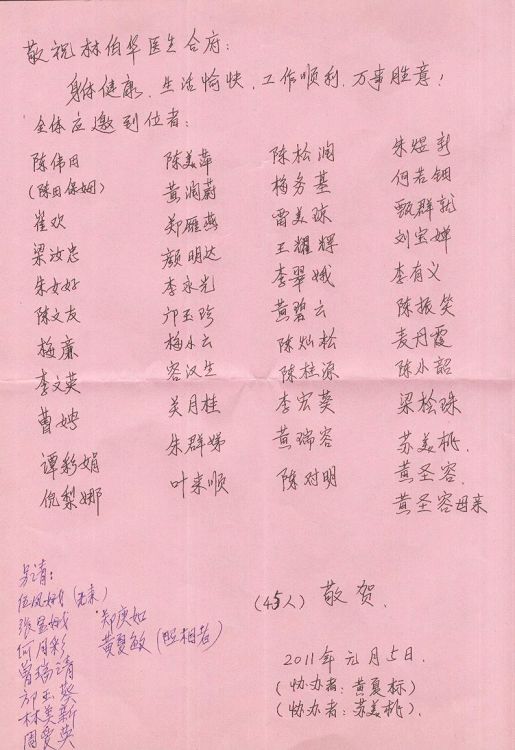 敬祝林伯华医生合府：
身体健康、生活愉快、工作顺利、万事胜意！
全体应邀到位者：
陈伟田 陈美萍 陈松润 朱煜新
(陈田保姆) 黄润蔚 梅务基 何若钿
崔欢 郑雁燕 雷美琼 甄群就
梁汝忠 颜明达 王耀辉 刘宝婵
朱女好 李永光 李翠娥 李有义
陈文友 邝玉珍 黄碧云 陈振笑
梅廉 梅小云 陈灿松 麦丹霞
李文英 容汉生 陈柱源 陈小韶
曹娉 关月桂 李宏葵 梁栓珠
谭彩娟 朱群娣 黄瑞容 苏美桃
倪梨娜 叶来顺 陈对明 黄圣容
黄圣容母亲
另请：
伍凤娥(元东)
张宝娥 郑庚如
何月彩 黄夏敏(照相者)
曾瑞清
邝玉葵
林美新
周爱英
(45人) 敬贺
2011年元月5日.
(协办者：黄夏标)
(协办者：苏美桃)